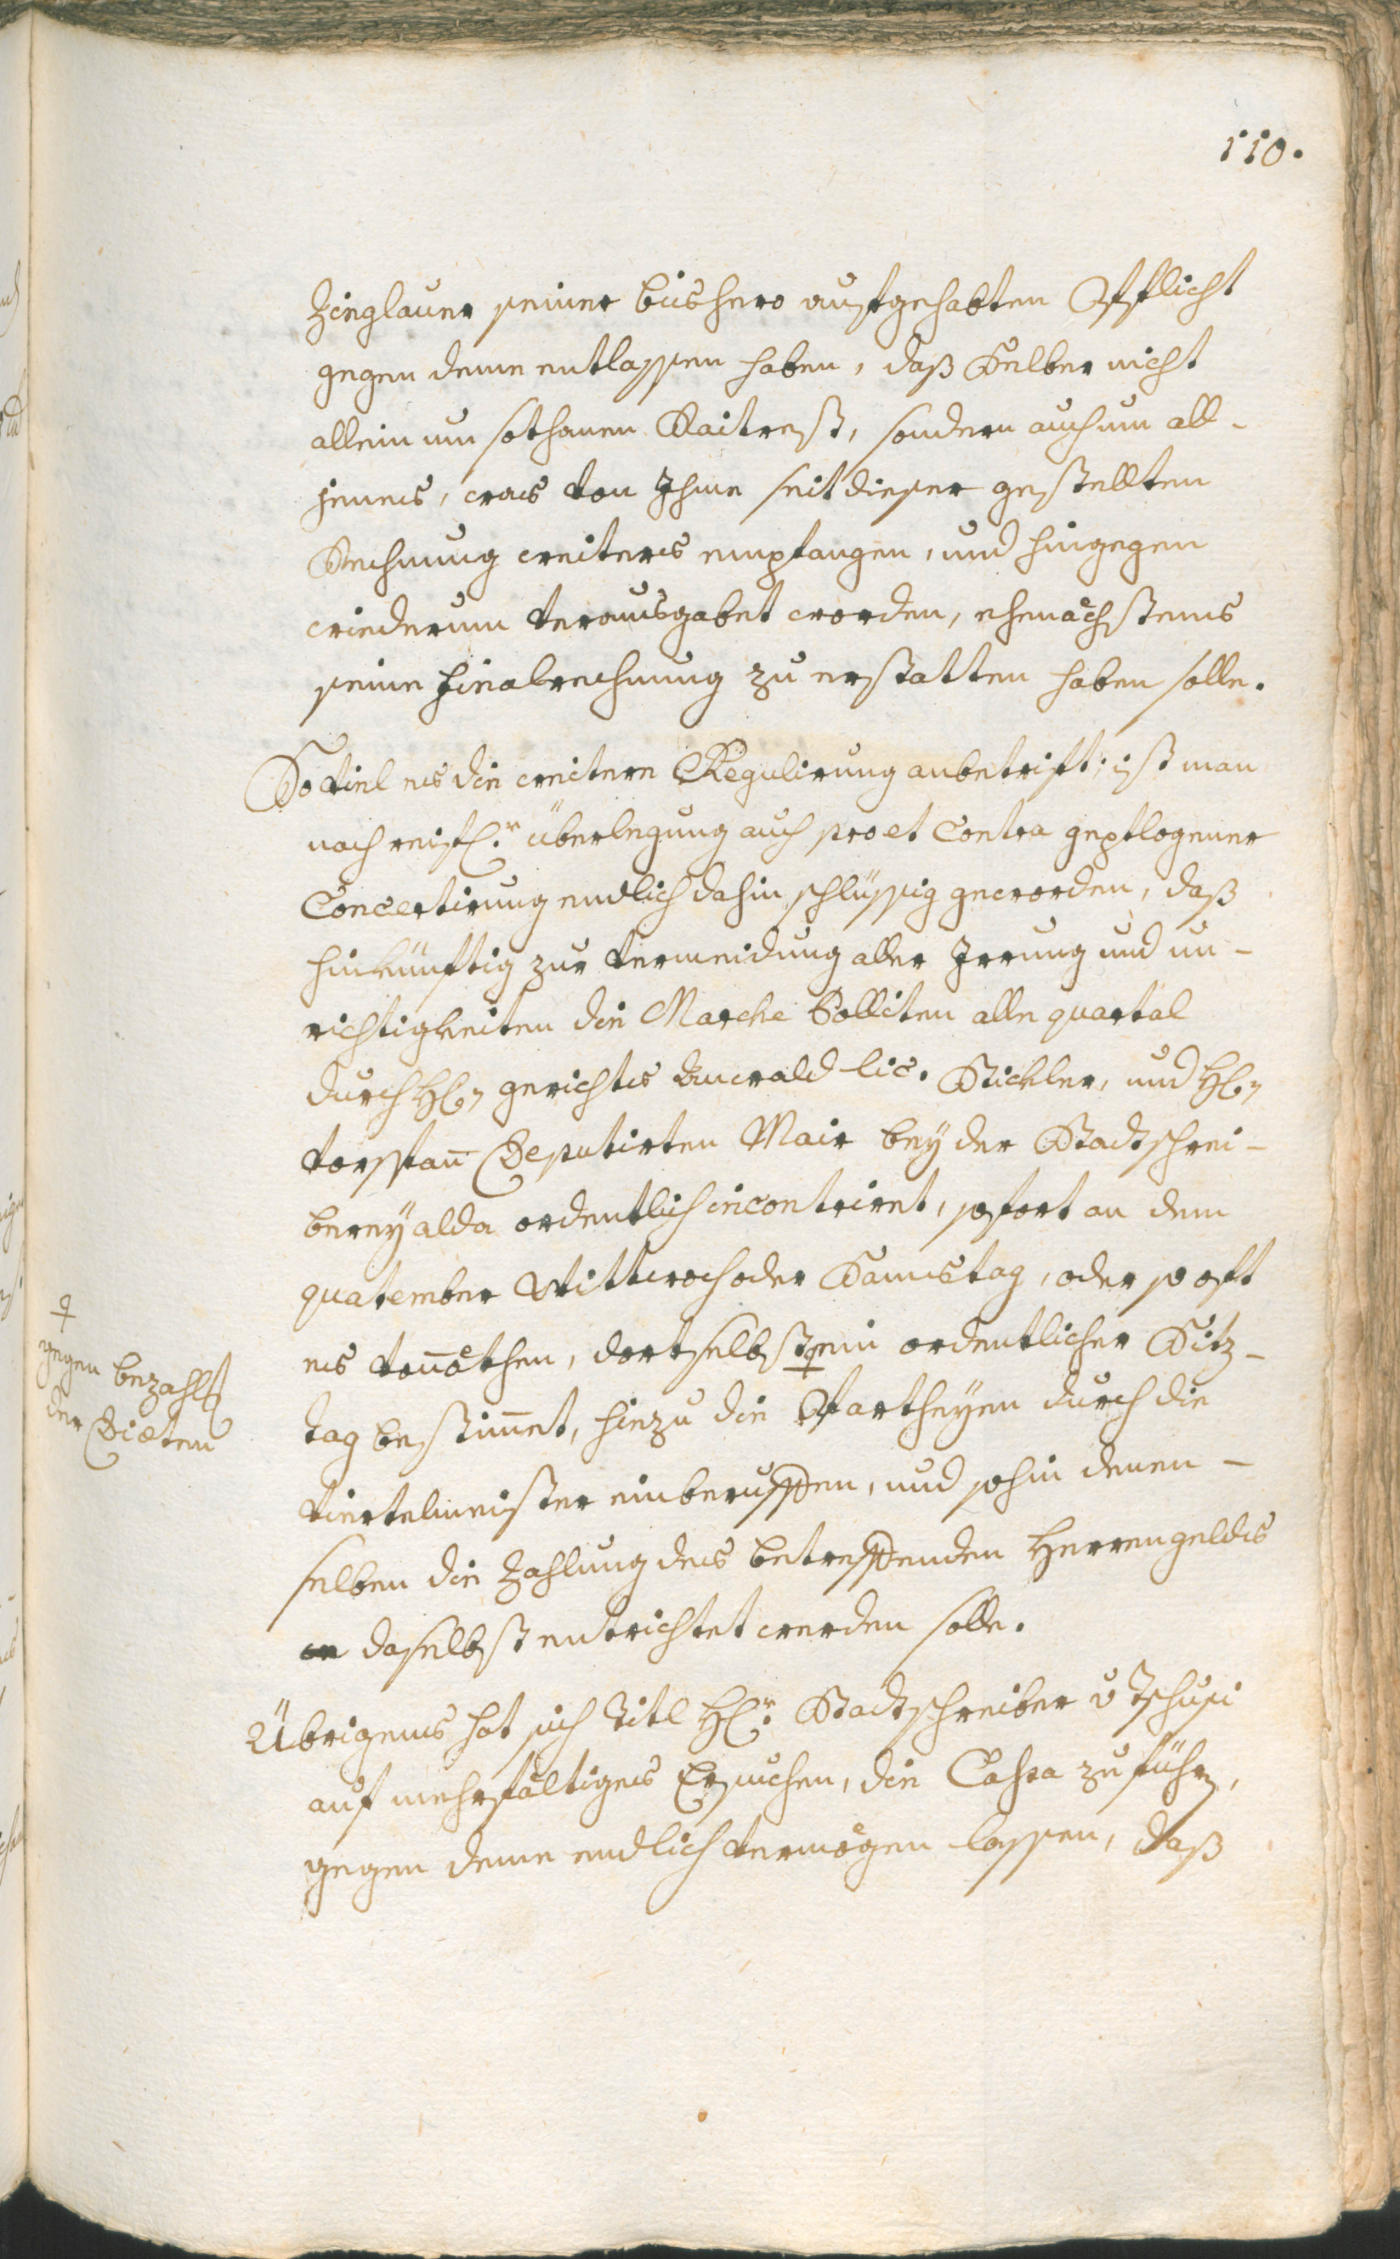 110.
Zieglauer seiner bishero aufgehabten Pflicht
gegen deme entlassen haben, daß Selber nicht
allein um sothanen Raitrest, sondern auch um all-
jenes, was von Ihme seit dieser gestellten
Rechnung weiters empfangen, und hingegen
wiederum verausgabet worden, ehenächstens
seine Finalrechnung zu erstatten haben solle.
So viel es die weitere Regulirung anbetrift; ist man
nach reifl:r überlegung auch pro et Contra gepflogener
Concertirung endlich dahin schlüssig geworden, daß
hinkünftig zur vermeidung aller Irrung und un-
richtigkeiten die Marche Polliten alle quartal
durch H:n gerichts Anwald lic. Stickler, und H:n
vorspan Deputirten Mair bey der Stadtschrei-
berey alda ordentlich incontrirt, sofort an dem
quatember Mittwoch oder Samstag, oder so oft
es vonöthen, dortselbst ein ordentlicher Sitz-
tag bestimmt, hiezu die Partheyen durch die
viertelmeister einberuffen, und sohin denen-
selben die Zahlung des betreffenden Herrengeldes
daselbst entrichtet werden solle.
Übrigens hat sich Titl H:r Stadtschreiber v Tschusi
auf mehrfältiges Ersuchen, die Cassa zu führen,
gegen deme endlich vermögen lassen, daß
gegen bezahlg
der Diæten